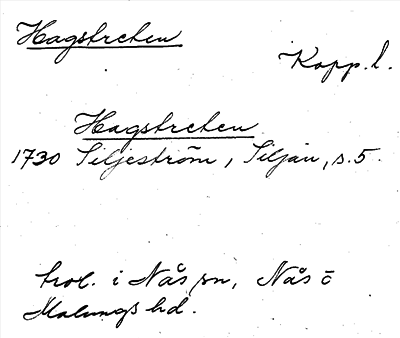 Hagstreten
Kopp. l.
Hagstreten
1730 Siljeström, Siljan, s. 5.
trol. i Nås sn, Nås o
Malungs hd.